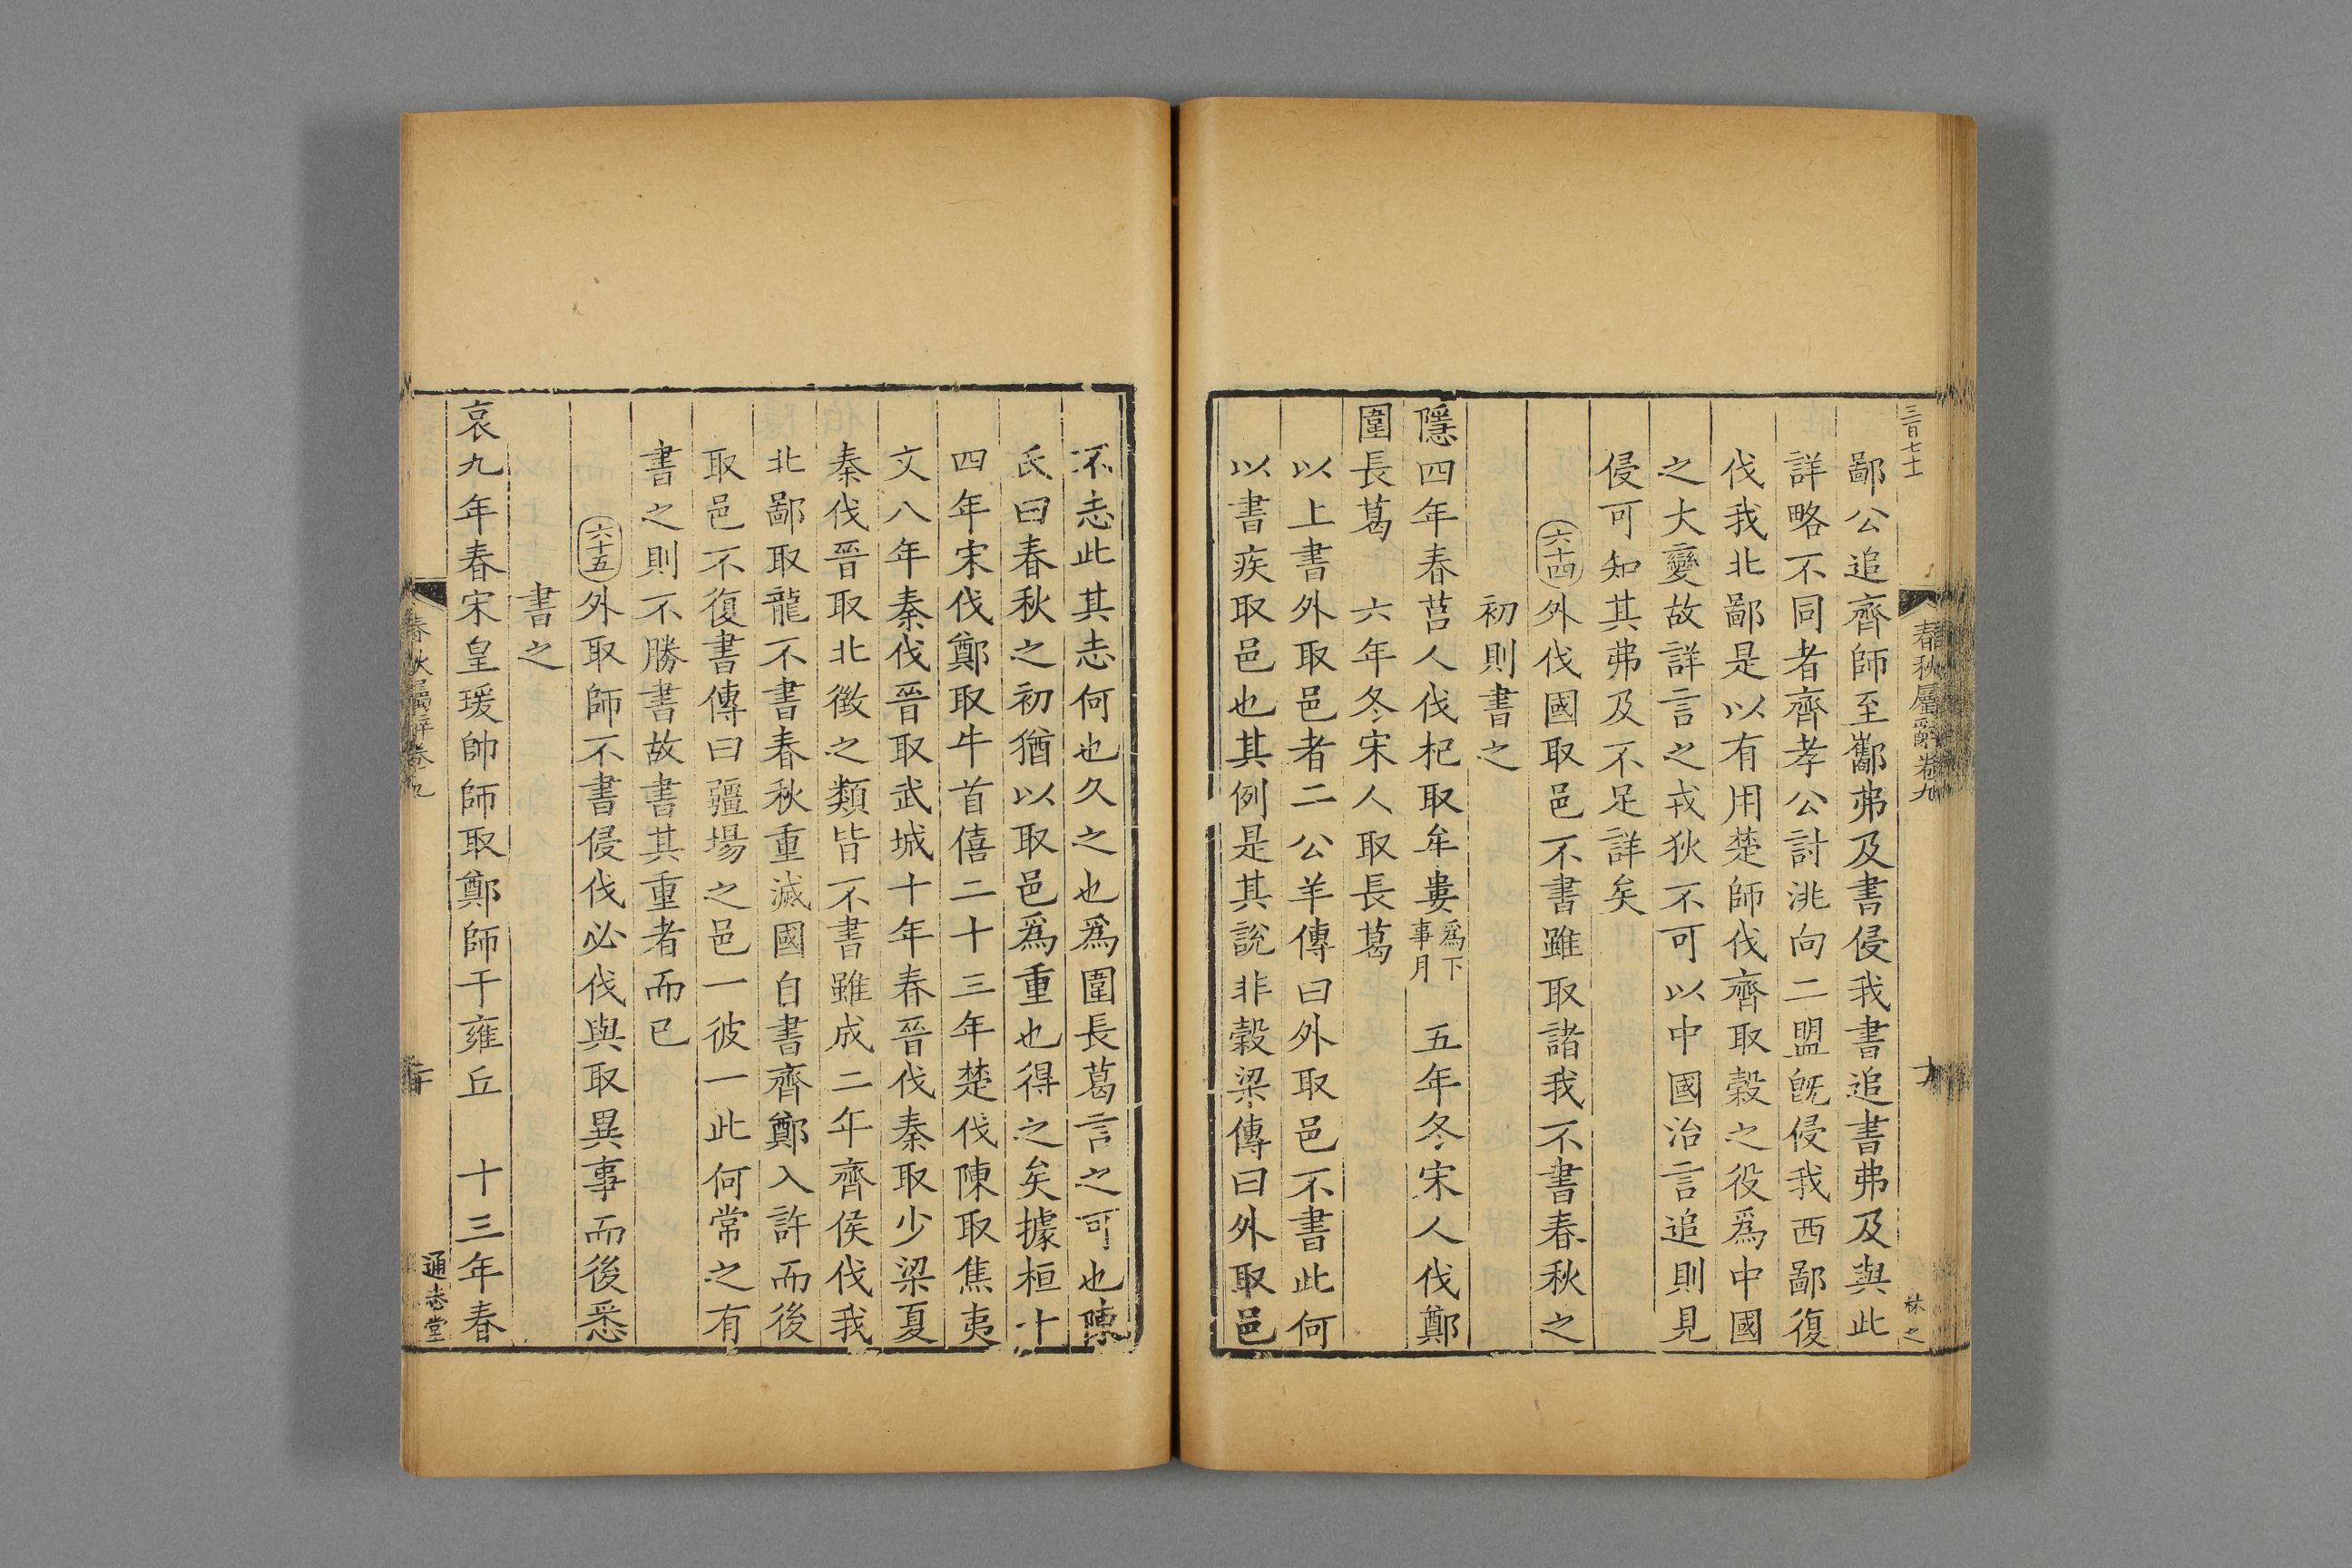 三百七十
春秋屬辭卷九
十九
林之
鄙公追齊師至酅弗及書侵我書追書弗及與此
詳略不同者齊孝公討洮向二盟旣侵我西鄙復
伐我北鄙是以有用楚師伐齊取穀之役爲中國
之大變故詳言之戎狄不可以中國治言追則見
侵可知其弗及不足詳矣
六十四外伐國取邑不書雖取諸我不書春秋之
初則書之
隱四年春莒人伐杞取牟婁爲下事月 五年冬宋人伐鄭
圍長葛 六年冬宋人取長葛
以上書外取邑者二公羊傳曰外取邑不書此何
以書疾取邑也其例是其說非穀梁傳曰外取邑
不志此其志何也久之也爲圍長葛言之可也陳
氏曰春秋之初猶以取邑爲重也得之矣據桓十
四年宋伐鄭取牛首僖二十三年楚伐陳取焦夷
文八年秦伐晉取武城十年春晉伐秦取少梁夏
秦伐晉取北徵之類皆不書雖成二年齊侯伐我
北鄙取龍不書春秋重滅國自書齊鄭入許而後
取邑不復書傳曰疆場之邑一彼一此何常之有
書之則不勝書故書其重者而已
六十五外取師不書侵伐必伐與取異事而後悉
書之
哀九年春宋皇瑗帥師取鄭師于雍丘 十三年春
春秋屬辭卷九
二十
通志堂